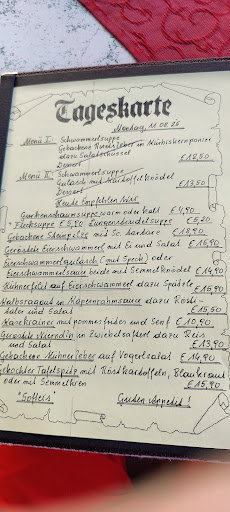 Tageskarte
Montag, 11.08.25
Menü I: Schwammerlsuppe
Gebackene Rindsleber in Kürbiskernpanier
dazu Salatschüssel
Dessert € 12,50
Menü II: Schwammerlsuppe
Gulasch mit Kartoffelknödel
Dessert € 13,50
Heute Empfehlen Wir!
Gurkenschaumsuppe warm oder kalt € 4,90
Flecksuppe € 5,20 Lungenstrudelsuppe € 5,20
Gebackene Steinpilze mit Sc. tartare € 18,90
Geröstete Eierschwammerl mit Ei und Salat € 15,90
Eierschwammerlgulasch (mit Speck) oder
Eierschwammerlsauce beide mit Semmelknödel € 14,90
Hühnerfilet auf Eierschwammerl dazu Spätzle
€ 15,90
Kalbsragout in Kapernrahmsauce dazu Rösti-
taler und Salat € 15,50
Käsekrainer mit pommes frites und Senf € 10,90
Geröstete Nierndln in Zwiebelsafterl dazu Reis
und Salat € 13,90
Gebackene Hühnerleber auf Vogerlsalat € 14,90
Gekochter Tafelspitz mit Röstkartoffeln, Blaukraut
oder mit Semmelkren € 15,90
Guten Appetit!